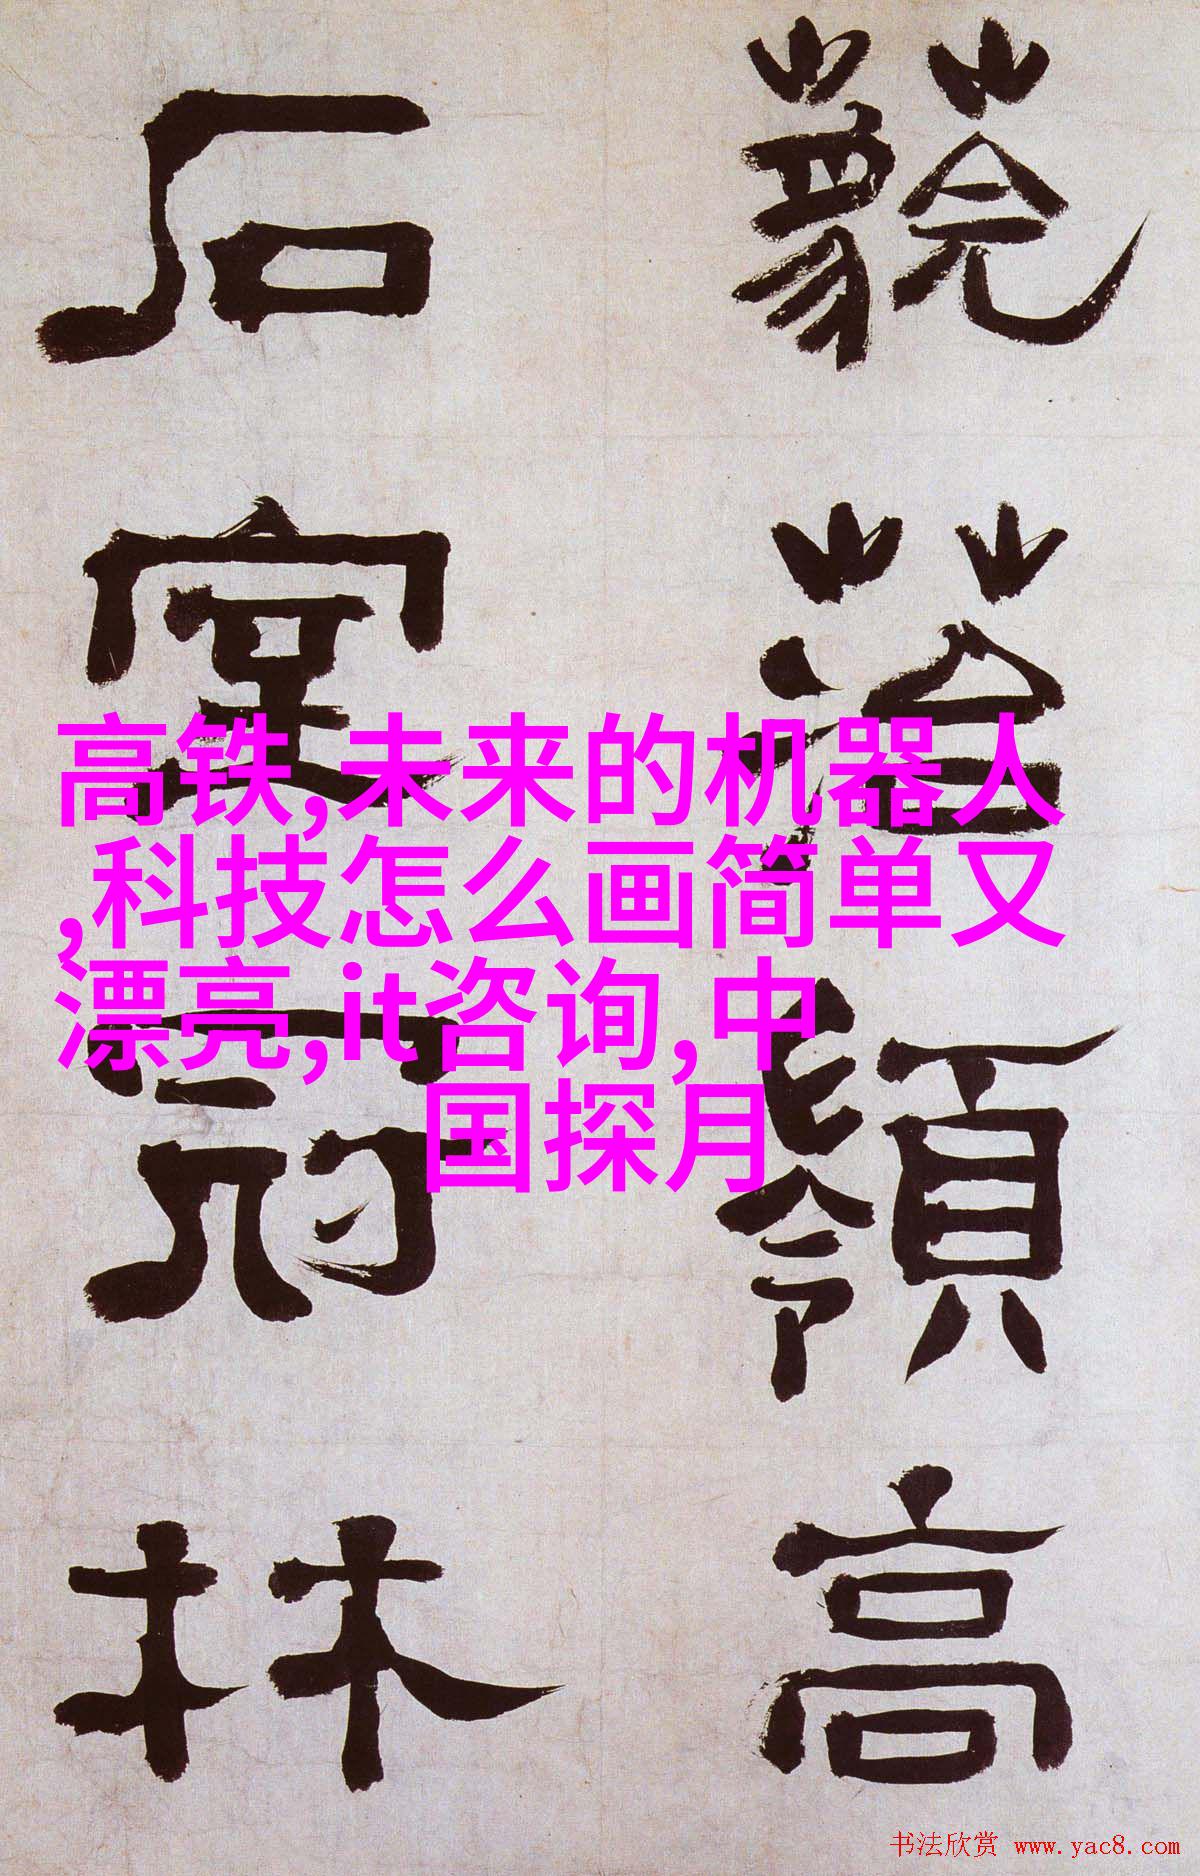 嶺高
石室冠林
高铁,未来的机器人
,科技怎么画简单又
漂亮,it咨询,中
国探月
书法欣赏 www.yac8.com